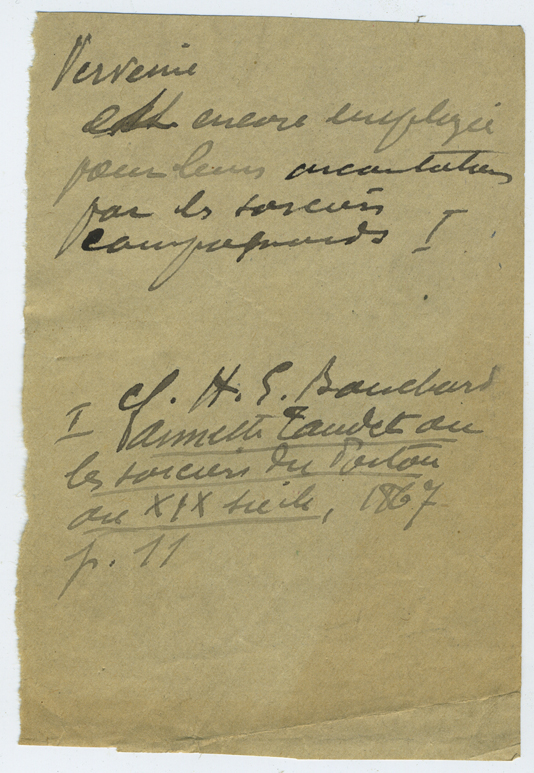 Verveine
est encore employée
pour leurs incantations
par les sorciers
campagnards I
I Cf. H. G. Bouchard
Jannette Taudet ou
les sorciers du Poitou
au XIX siècle, 1867
p. 11